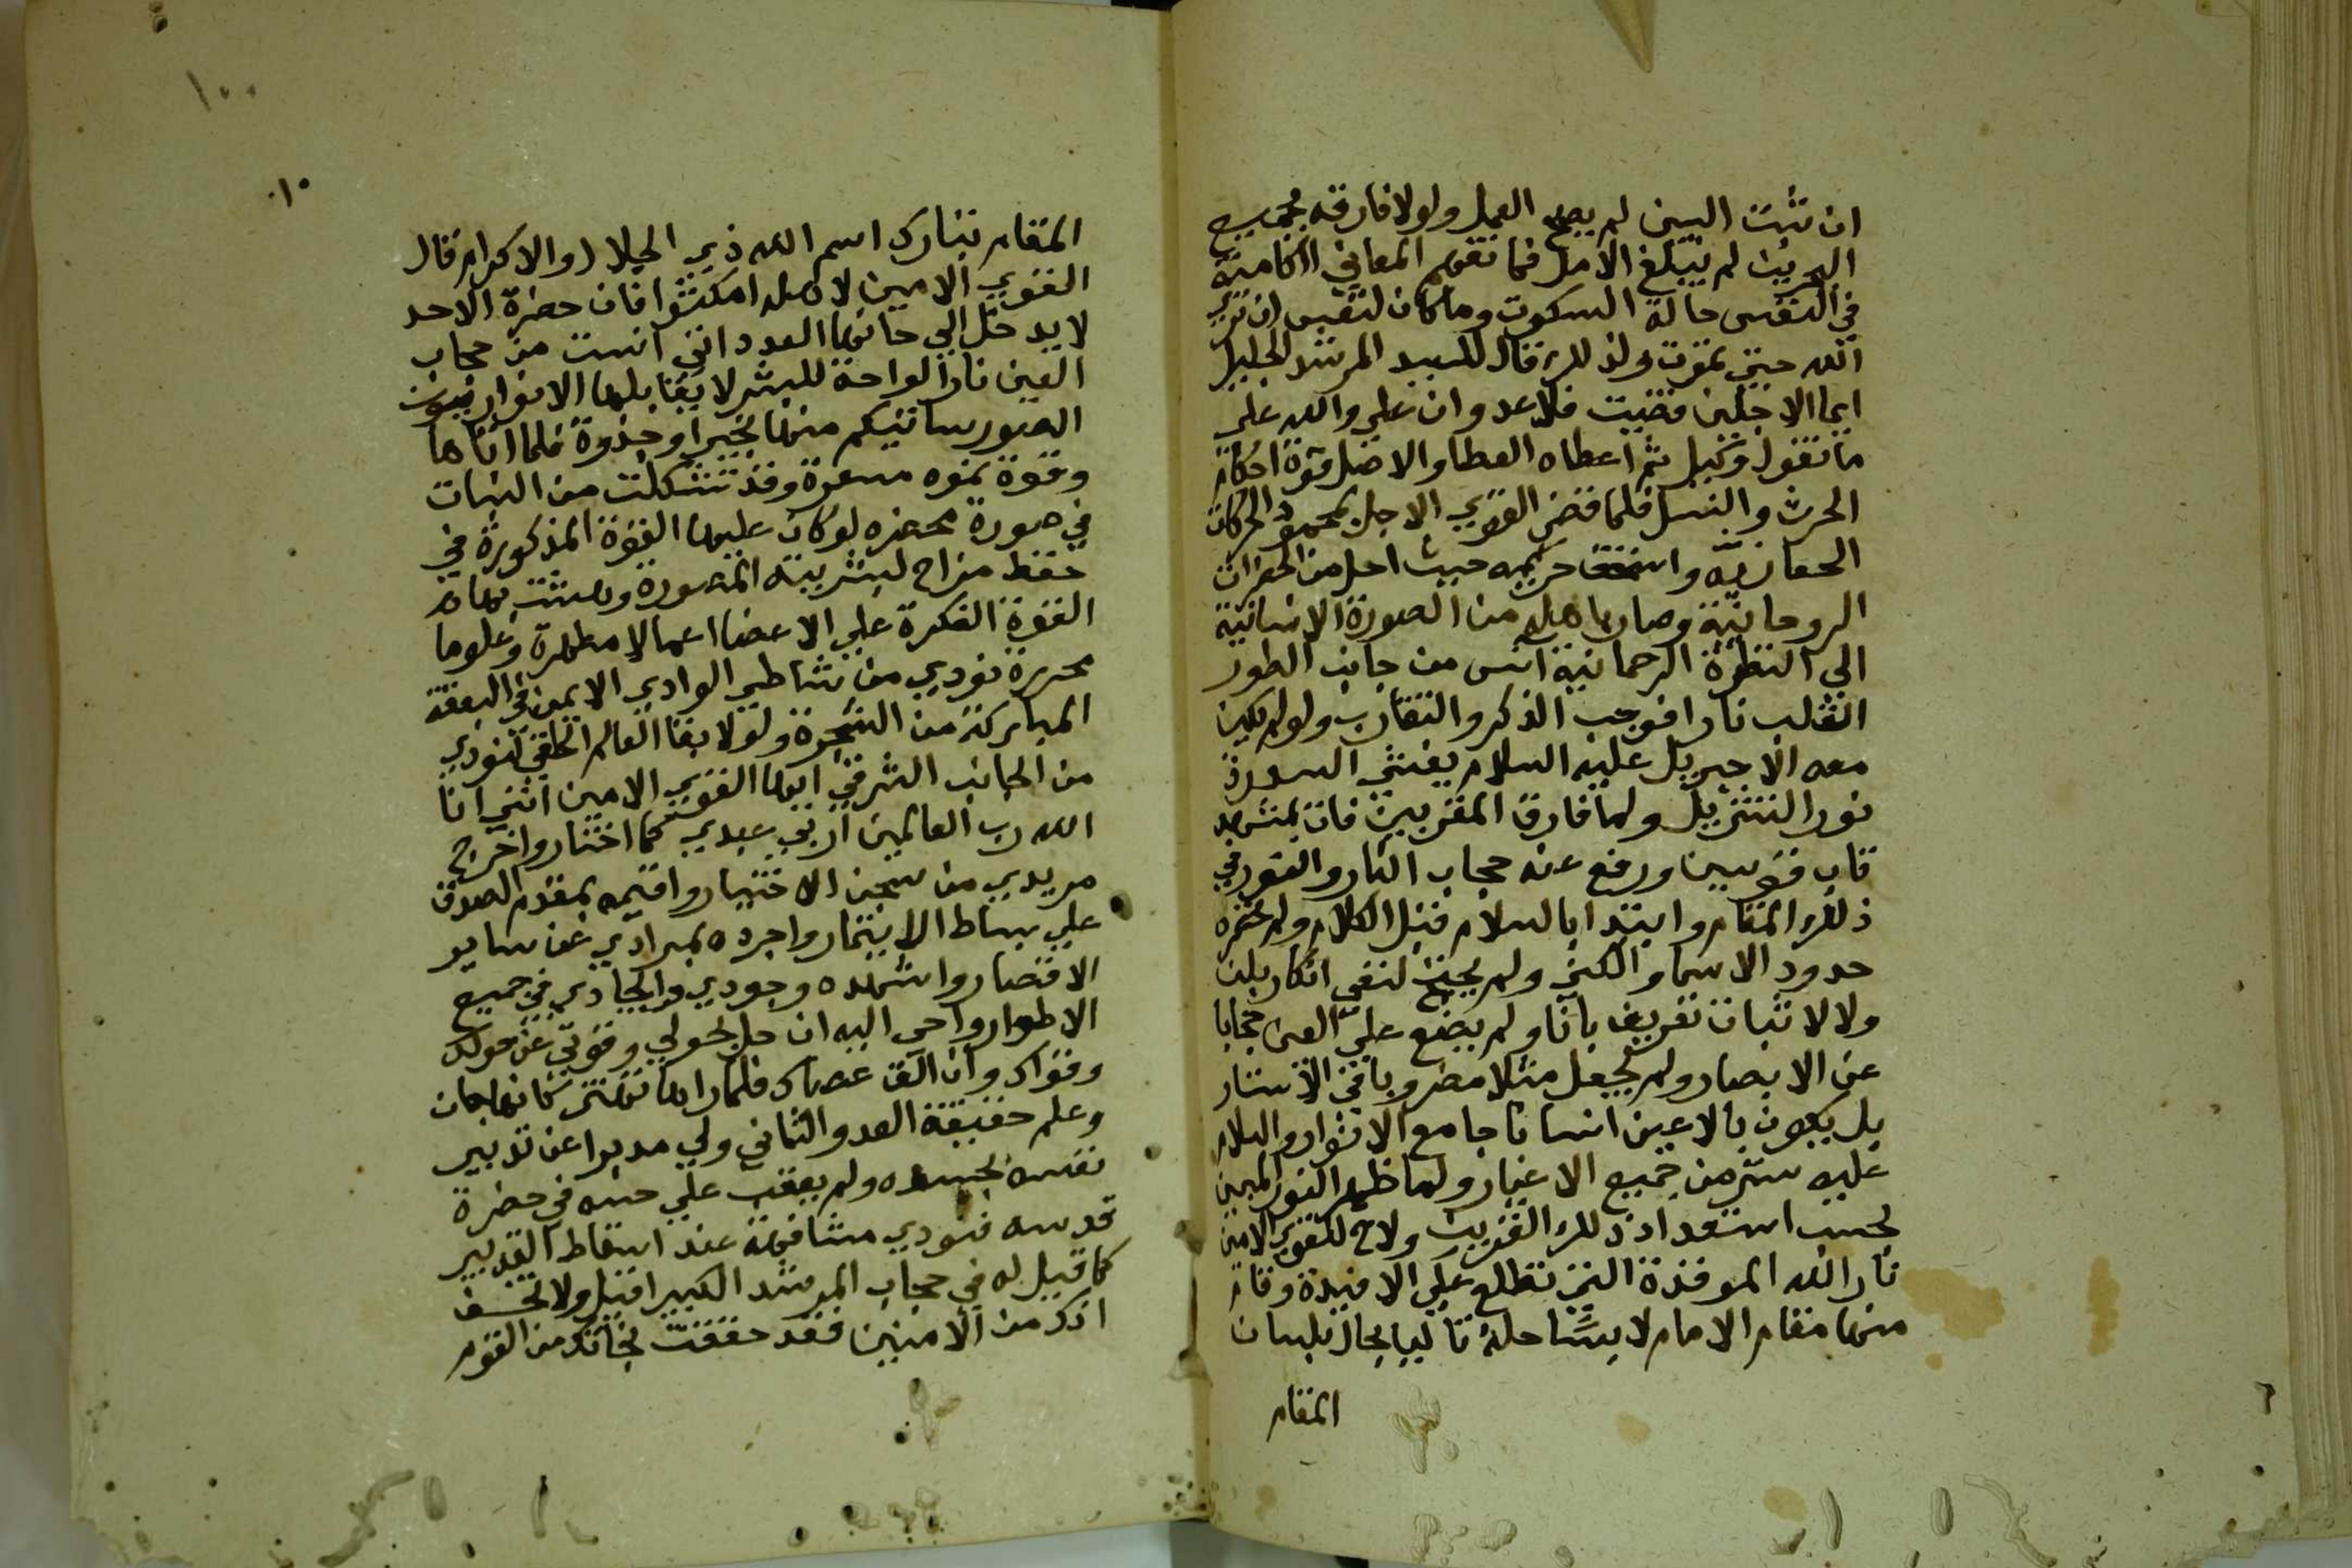 ان تثبت البين لم يصح العمل ولولا فارقه بجميع
البريت لم يبلغ الامل فما تفهم المعاني الكامنة
في النفس حالة السكوت وما كان لنفس ان تري
الله حتي تموت ولذلك قال للسيد المرشد الجليل
ايما الاجلين قضيت فلا عدوان علي والله علي
ما نقول وكيل ثم اعطاه العطا والاصل قوة احكام
الحرث والنسل فلما قضي القوي الاجل بمحمود الحركات
الحقانيه حريمه حيث احل من الحضرات
الروحانية وصار باهله من الصورة الانسانية
الي النظرة الرحمانية انس من جانب الطور
القلب نارا فوجب الذكر والتقارب ولو لم يكن
معه الا جبريل عليه السلام يغشي السدرة
نور التنزيل ولما فارق المقربين فات بمشهد
قاب قوسين ورفع عنه حجاب النار والنور في
ذلك المقام وابتدا بالسلام قبل الكلام ولم تحصره
حدود الاسما والكني ولم يحتج لنفي انكار بلن
ولا لاثبات تعريف بانا ولم يضع علي العين حجابا
عن الابصار ولم يجعل مثلا مضروبا في الاستار
بل يكون بالاعين انسانا جامع الانوار والسلام
عليه ستر من جميع الاغيار ولما ظهر النور المبين
لحسب استعداد ذلك القريب ولاح للقوي الامين
نار الله الموقدة التي تطلع علي الافيدة وقام
منها مقام الامام لابسًا حلة تاليا بحال بلسان
المقام
١٠٠
١٠
المقام تبارك اسم الله ذي الجلال والاكرام قال
القوي الامين لاهله امكثوا فان حضرة الاحد
لا يدخل الي حانها العدد اني انست من حجاب
العين نارا لواحة للبشر لا يقابلها الانوار
الصور ساتيكم منها بخبر او جذوة فلما اتاها
وقوة نموه مسعرة وقد تشكلت من النبات
في صورة محضره لوكات عليها القوة المذكورة في
حفظ مزاج لبشريته المتصورة
القوة الفكرة علي الاعضا اعمالا مطهرة وعلوما
محررة نودي من شاطي الوادي الايمن في البقعة
المباركة من الشجرة ولولا بقا العالم الخلقي لنودي
من الجانب الشرقي ايها القوي الامين انني انا
الله رب العالمين اربي عبدي كما اختار واخرج
مريدي من سجن الاختيار واقيمه بمقدم الصدق
علي بساط الايتمار واجرده بمرادي عن ساير
الاقتصار واشهده وجودي وايجادي في جميع
الاطوار واحي اليه ان حل بحولي وقوتي عن حولك
وقواك وان الق عصاك فلما راها تهتز كانها جان
وعلم حقيقة العدو الثاني ولي مدبرا عن تدبير
نفسه لجسده ولم يعقب علي حسه في حضرة
قدسه فنودي مشافهة عند اسقاط التدبير
كما قيل له في حجاب المرشد الكبير اقبل ولا تخف
انك من الامنين فقد حققت نجاتك من القوم